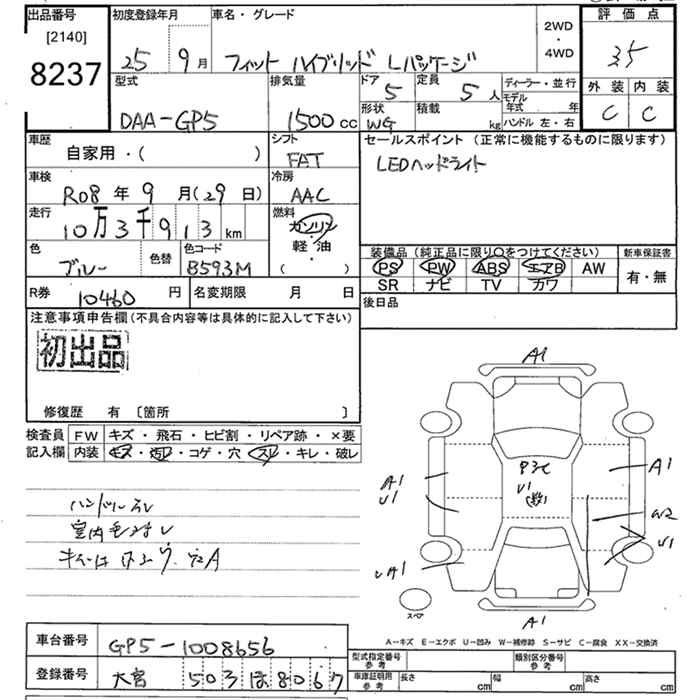 出品番号 初度登録年月 車名・グレード 2WD 評価点
[2140] ・
8237 25 9月 フィット ハイブリッド Lパッケージ 4WD 3.5
型式 排気量 ドア 定員 ディーラー・並行 外装 内装
5 5人 モデル年式 年
DAA-GP5 1500cc 形状 積載 C C
WG kg ハンドル 左・右
車歴 シフト セールスポイント (正常に機能するものに限ります)
自家用・( ) FAT LEDヘッドライト
車検 冷房
R08年 9月(29日) AAC
走行 燃料
10万3千913km ガソリン
色 色替 色コード 軽・油 装備品(純正品に限り○をつけてください) 新車保証書
ブルー B593M ( ・ ) PS PW ABS エアB AW 有・無
SR ナビ TV カワ
R券 10460円 名変期限 月 日 後日品
注意事項申告欄(不具合内容等は具体的に記入して下さい)
初出品
A1
修復歴 有 [箇所 ]
検査員 FW キズ・飛石・ヒビ割・リペア跡・×要
記入欄 内装 キズ・汚レ・コゲ・穴・スレ・キレ・破レ
A1 U1 A1
U1 W2
ハンドルスレ U1
A1
スペア A1
A-キズ E-エクボ U-凹み W-補修跡 S-サビ C-腐食 XX-交換済
車台番号 GP5-1008656 型式指定番号 参考 類別区分番号 参考
登録番号 大宮 503 ほ 8067 車庫証明用 参考 長さ cm 幅 cm 高さ cm